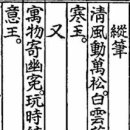 縱筆
清風動萬松。白雲
寒玉。
又
寓物寄幽寃。玩時
意王。